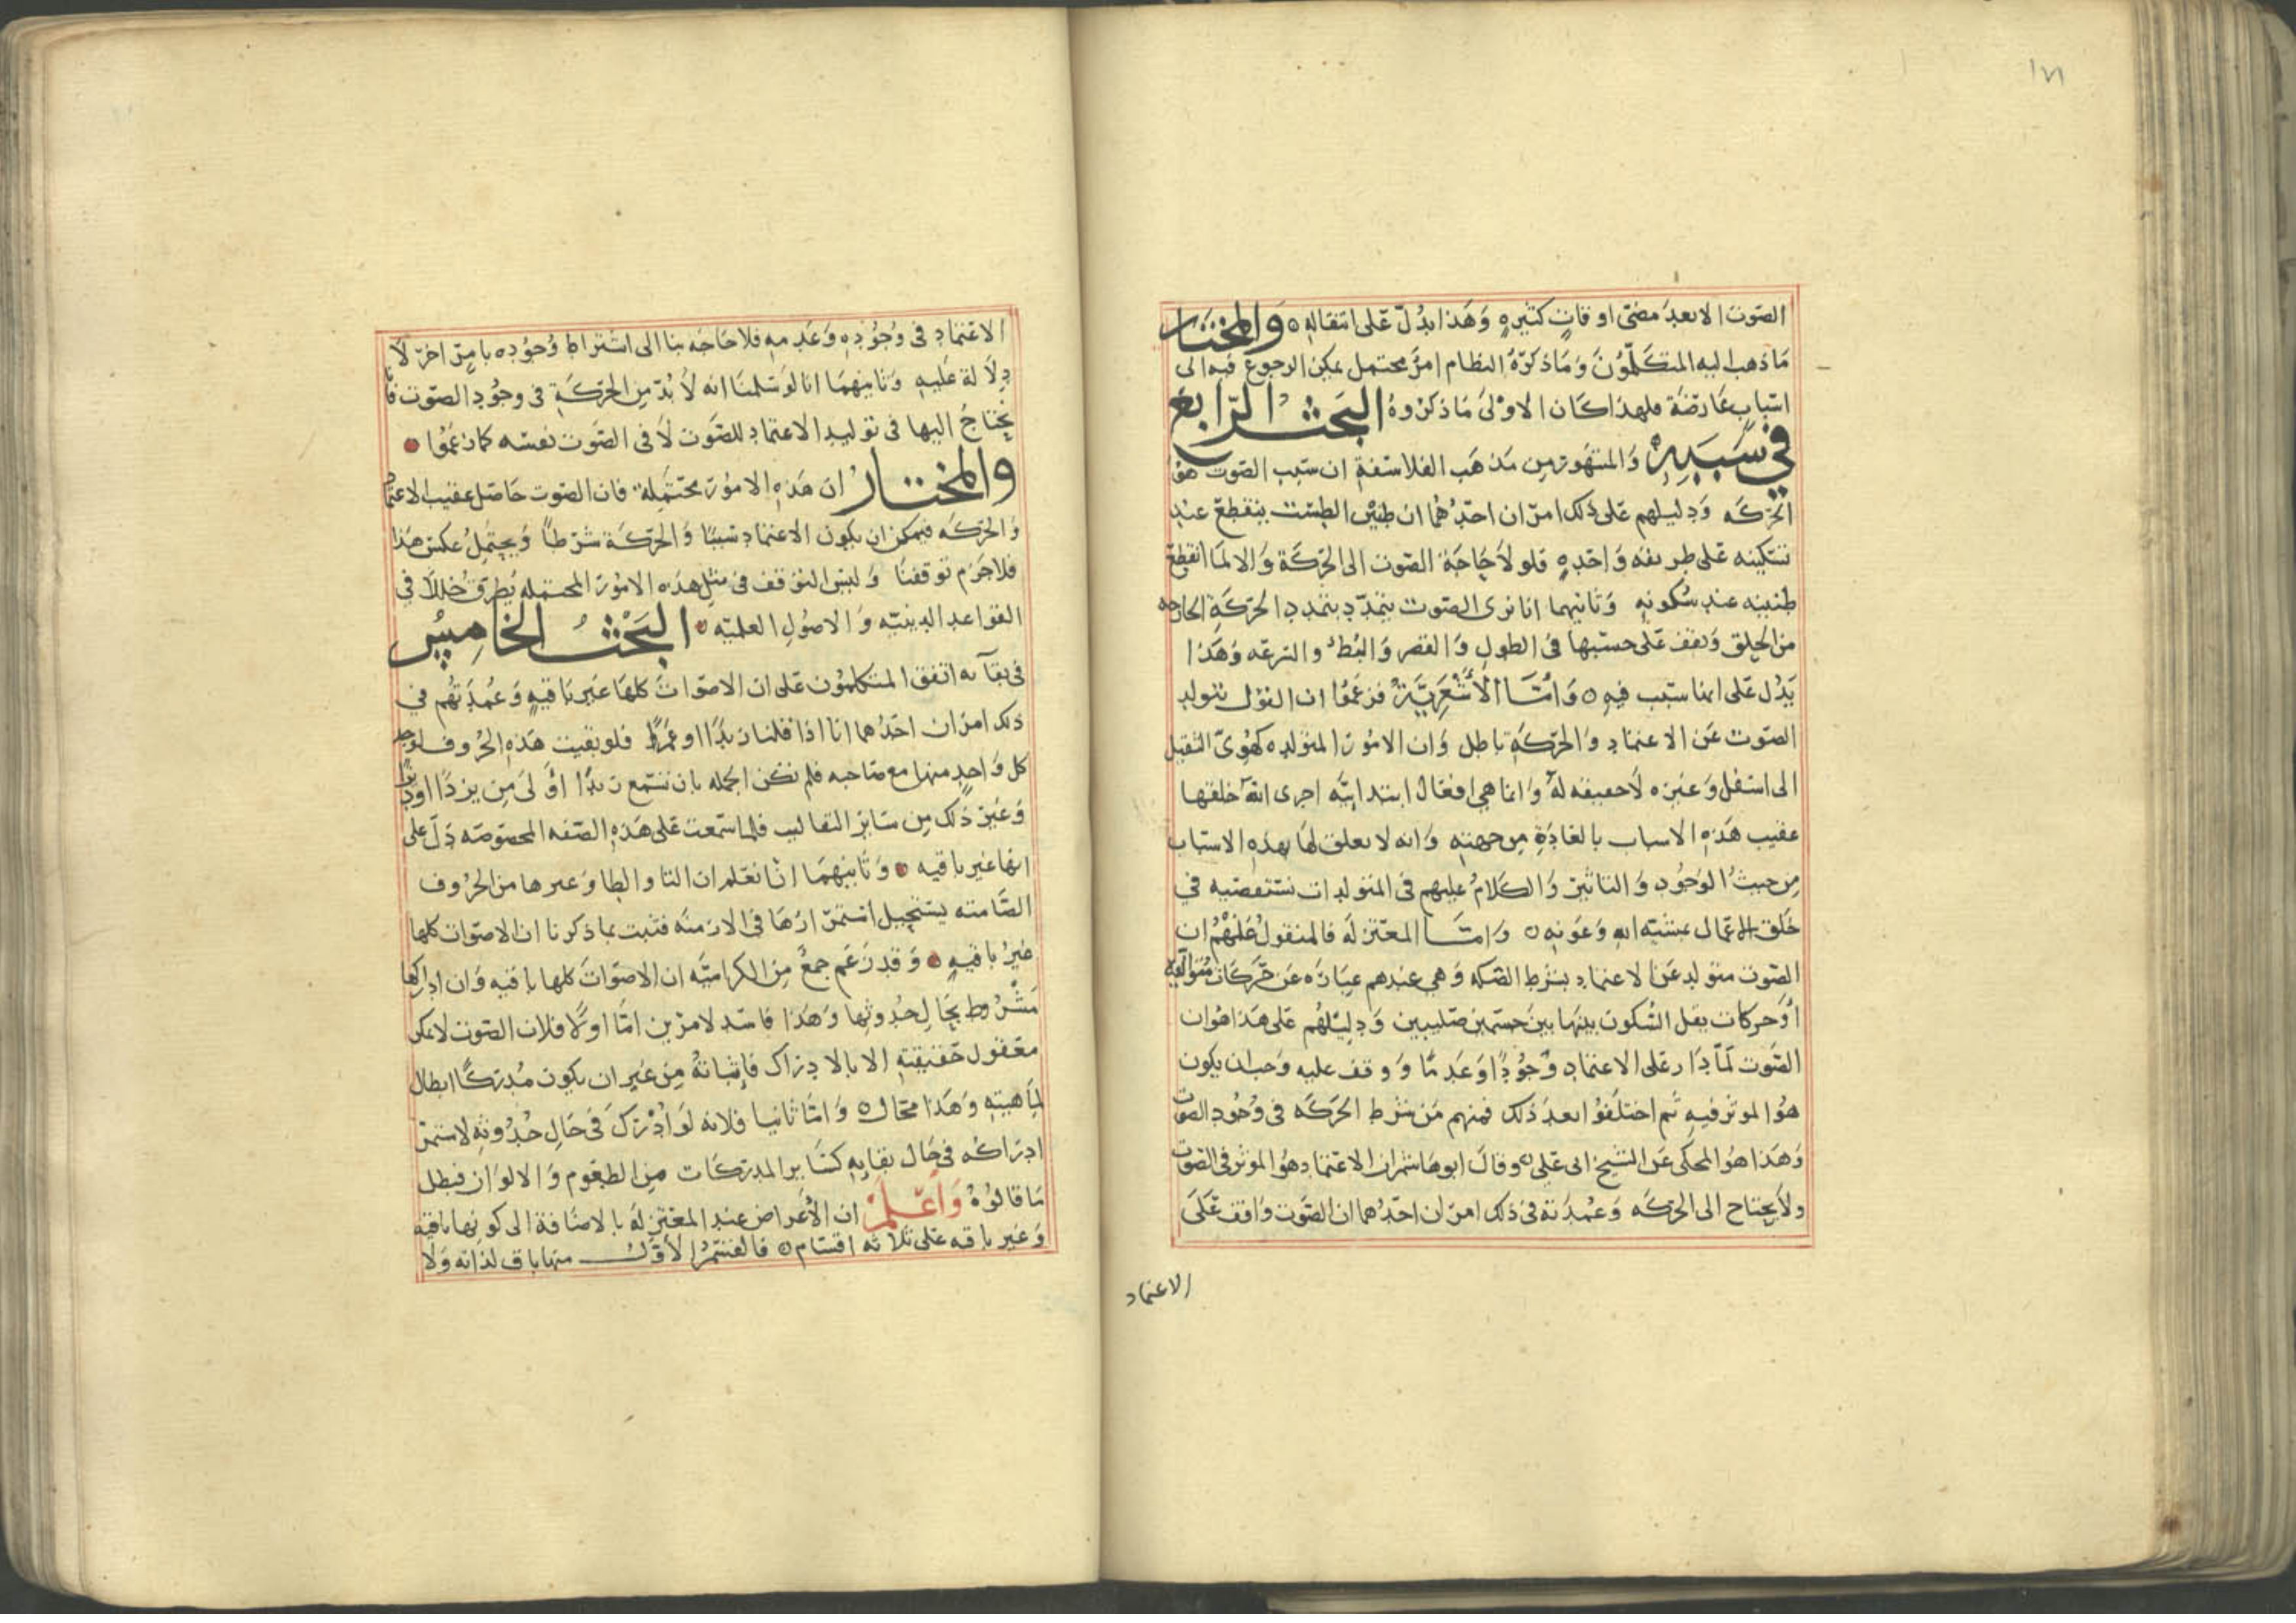 ١٨١
الصّوت الا بعد مضىّ اوقاتٍ كثيرهٍ وَهَذا يدُلّ عَلى انتقالهِ ه وَالمختَار
مَا ذهب اليه المتكَلّمُونَ وَمَا ذكرَهُ النظام امرٌ محتمل يمكِن الرجوع فيه الى
اسبابٍ عَارضَة فلهذا كَان الاوْلىَ مَا ذكرُوهُ البَحثُ الرّابعُ
فِي سَبَبِهِ وَالمشهورمِن مَذهَب الفلاسفةِ ان سَبب الصَوت هُوَ
الحَرَكَه وَدليلهم عَلى ذلك امرَان احَدُهُما ان طنِيْن الطِسْت ينقطِعْ عندِ
تسَكينه عَلى طريقه وَاحدهٍ فلولاَ حَاجَة الصَوت الى الحَرَكَة وَالا لمَا انقطعَ
طنينه عند سُكونهِ وَثانيهما انا نرى الصَوت يتمدّد بتمددِ الحَرَكَةِ الخارجه
مِن الحلِق وَيقف عَلى حسَبهَا فى الطول وَالقصَر وَالبُطء والسّرعَه وَهَذا
يَدُل عَلى انها سَبب فيهِ ه وَأمّا الأَشعَرِيَّةُ فزعَمُوا ان القول بتولد
الصَوت عَن الاعتماد وَالحَرَكَه بَاطل وَان الامُورَ المتولده كهُوِىّ الثقيل
الى اسْفل وَغيره لاَ حقيقه لهَا وَانما هي افعَال ابتدائيَّه اجرى اللّه خلقها
عقيب هَذهِ الاسباب بالعَادَةِ مِن جهتهِ وَانه لا تعلق لهَا بهذهِ الاسبَاب
مِن حيثُ الوُجُودِ وَالتاثيرِ وَالكلاَمُ عليهم فى المتولدات نستقصيه فى
خَلق الاعمَال بمشيّه الله وَعونهِ ه وَامّا المعتزلَه فالمنقول عَنهُمْ ان
الصَوت متولد عَن الاعتماد بشرط الصَكه وَهي عندهم عبَارَه عَن حَرَكَات متواليَه
أوْ حركات يقل السُّكون بينهَا بينَ جسمَين صَليبين وَدليلهُم عَلى هَذا هُوان
الصَوت لَمّا دَار على الاعتماد وُجُودًا وَعَدمًا وَوقف عليهِ وَجب ان يكون
هُوا لموثر فيهِ ثم اختلَفُوا بعدَ ذلك فمنهم مَن شَرط الحَرَكَه فى وُجُود الصَوت
وَهَذا هُوَ المحكى عَن الشيخ ابى عَلى ه وقالَ ابوهَاشم ان الاعتمَاد هُوَ الموثر فى الصَوت
ولاَ يحتاج الى الحَرَكَه وَعُمدَتهُ فى ذلك امرَان احَدُهما ان الصَوت وَاقف عَلَى
الاعتماد
الاعتمادِ فى وجُوُدهِ وَعَدمهِ فلاحَاجَه بنا الى اشتراط وُجوُده بامرٍ اخرَ لاَ
دِلاَلة عَليهِ وَثانيهمَا انا لوْ سَلمنَا انه لاَ بُدّ مِن الحَرَكَةِ فى وجُود الصَوت فا
يحتاجُ اليها فى توليد الاعتماد للصَوت لاَ فى الصَوت نفسَه كمَا زعمُوا
وَالمختَارُ ان هَذهِ الامُورَ محتمَلة فان الصَوت حَاصِل عَقيب الاعتمَاد
وَالحَرَكَه فيمكن ان يكون الاعتمادِ سَببًا وَالحَرَكَة شَرطاً وَيحتمِلُ عكس هَذا
فلاجَرَم توقفنَا وَليسَ التوقف فى مثل هَذهِ الامُورَ المحتمله يُطرق خَللاً فى
القوَاعد الدينيّه وَالاصُول العلميّه البَحْثُ الخَامِسُ
فى بقآئه اتفقَ المتكلمُون عَلى ان الاصوَاتَ كلهَا غَير بَاقيهٍ وَعُمدَتهُم فى
ذلك امرَان احَدُهما انا اذا قلنا زَيدًا اوعَمرًا فلو بَقيت هَذهِ الحُرُوف لوجد
كل وَاحدٍ منها مع صَاحبه فلم تكن الجمله بان تسْمع زَيدًا اَوْلَى مِن يزدًا اودَيزًا
وَغيرَ ذلَك مِن سَائر التقاليب فلما سَمعت عَلى هَذهِ الصّفه المخصوصَه دَلّ على
انها غَير بَاقيه وَثانيهمَا انّا نعلم ان التا وَالطا وَغيرها مِن الحُرُوف
الصّامته يستَحِيل استمرَارُهَا فى الازمنَه فثبت بما ذكرنا ان الاصوَات كلها
غَيرُ باقيهٍ وَقد زعَم جمعٌ مِن الكراميّه ان الاصوَاتَ كلها باقيه وَان ادراكها
مَشرُوط بحَالِ حدُوثها وَهَذا فاسد لامرَين امّا اولاً فلان الصَوت لايمكن
معقول حَقيقتهِ الا بالادراك فاِثباتهُ مِن غَير ان يكون مُدرَكًا ابطال
لِمَاهيتهِ وَهَذا محَال ه وَامّا ثانيا فلانه لوَ اُدْرَكَ فى حَال حُدُوثهِ لاستمرّ
ادرَاكُه فى حَال بقايهِ كسَاير المدرَكَات مِن الطعُوم وَالالوَان فبطل
مَا قالُوهُ وَاَعْلَم ان الاعرَاض عند المعتزلَهُ بالاضَافة الى كونها باقيه
وَغيرِ باقيه عَلى ثلاثه اقسَام ه فالقسمُ الاَوّلُ منها باق لذاته وَلاَ